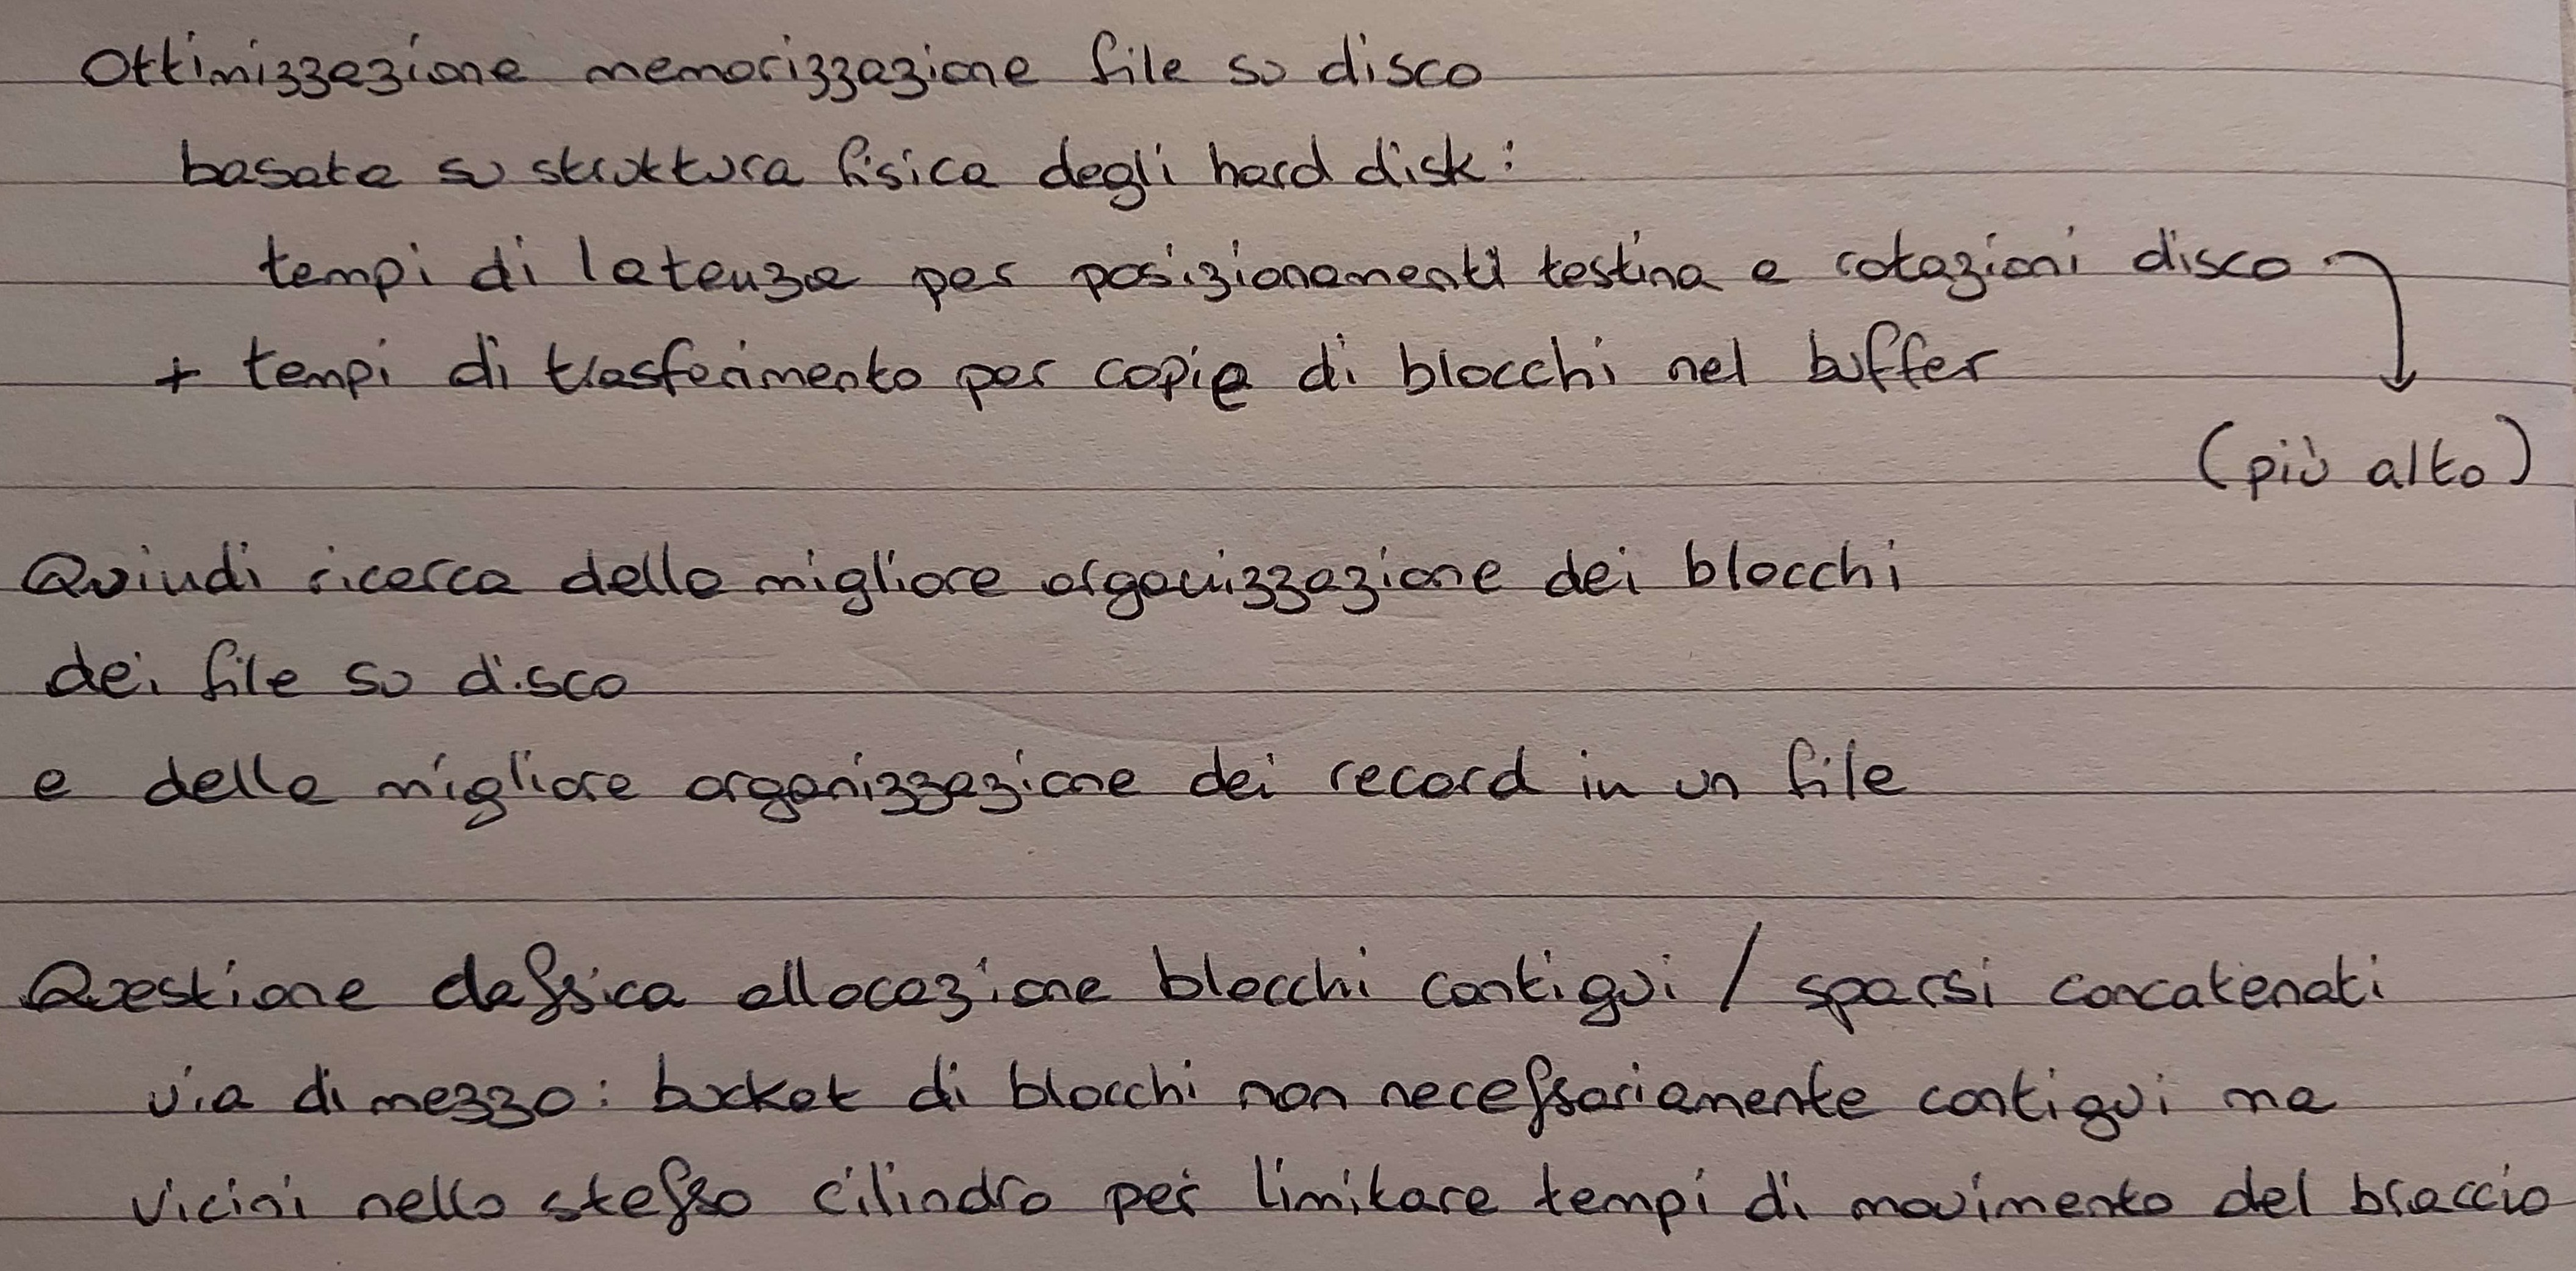 Ottimizzazione memorizzazione file su disco
basata su struttura fisica degli hard disk:
tempi di latenza per posizionamenti testina e rotazioni disco
+ tempi di trasferimento per copia di blocchi nel buffer
(più alto)
Quindi ricerca della migliore organizzazione dei blocchi
dei file su disco
e della migliore organizzazione dei record in un file
Questione classica allocazione blocchi contigui / sparsi concatenati
via di mezzo: bucket di blocchi non necessariamente contigui ma
vicini nello stesso cilindro per limitare tempi di movimento del braccio